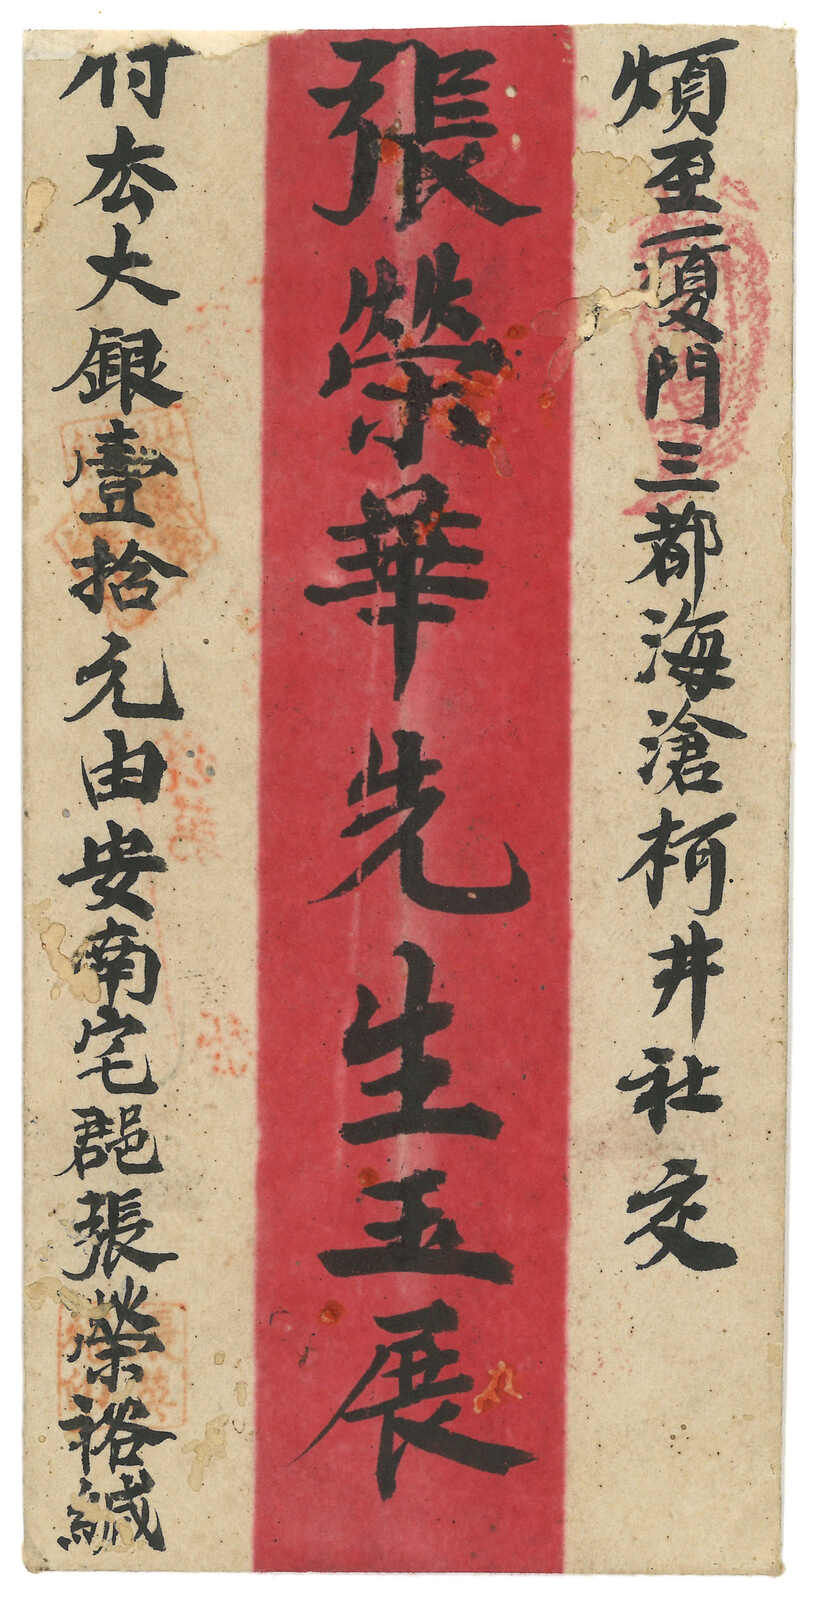 煩至厦門三都海滄柯井社交
張榮華先生玉展
付去大銀壹拾元由安南宅郡張榮裕緘